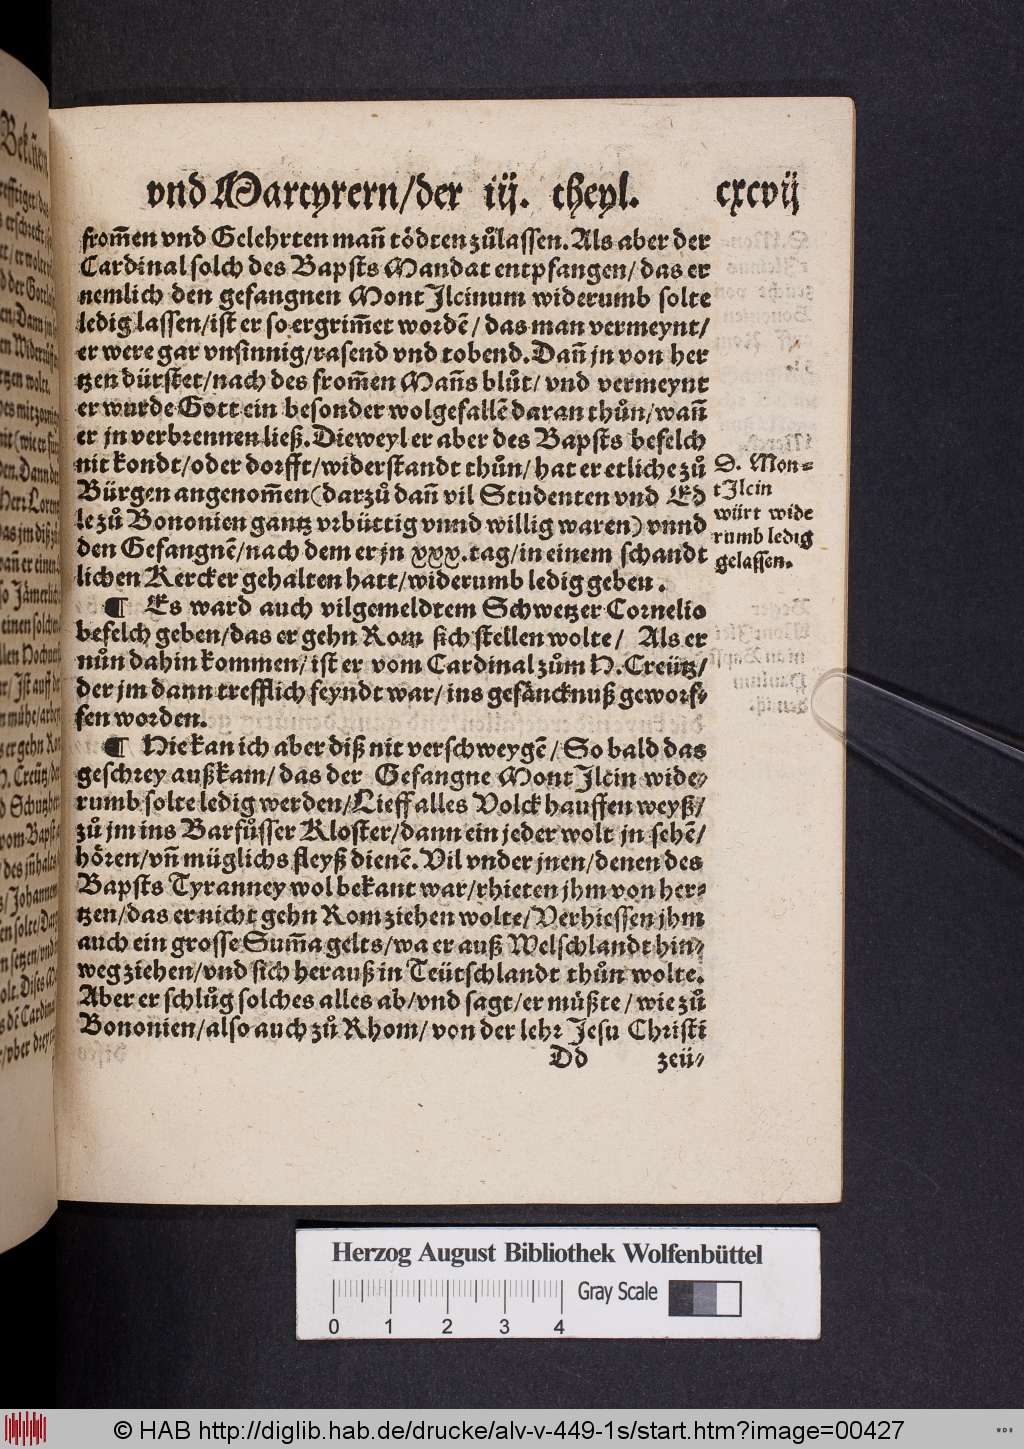 vnd Martyrern/der iij. theyl. cxcvij
from̃en vnd Gelehrten mañ tödten zůlassen. Als aber der
Cardinal solch des Bapsts Mandat entpfangen/ das er
nemlich den gefangnen Mont Jlcinum widerumb solte
ledig lassen/ist er so ergrim̃et wordẽ/ das man vermeynt/
er were gar vnsinnig/rasend vnd tobend. Dañ jn von her
tzen dürstet/nach des from̃en Mañs blůt/ vnd vermeynt
er wurde Gott ein besonder wolgefallẽ daran thůn/wañ
er jn verbrennen ließ. Dieweyl er aber des Bapsts befelch
nit kondt/oder dorfft/widerstandt thůn/ hat er etliche zů
Bürgen angenom̃en (darzů dañ vil Studenten vnd Ed
le zů Bononien gantz vrbüttig vnnd willig waren) vnnd
den Gefangnẽ/nach dem er jn xxx. tag/in einem schandt
lichen Kercker gehalten hatt/widerumb ledig geben.
S. Mon-
t Jlcin
würt wide
rumb ledig
gelassen.
¶ Es ward auch vilgemeldtem Schwetzer Cornelio
befelch geben/das er gehn Rom sich stellen wolte/ Als er
nůn dahin kommen/ ist er vom Cardinal zům H. Creütz/
der jm dann trefflich feyndt war/ins gefäncknuß geworf-
fen worden.
¶ Hie kan ich aber diß nit verschweygẽ/ So bald das
geschrey außkam/ das der Gefangne Mont Jlcin wide-
rumb solte ledig werden/Lieff alles Volck hauffen weyß/
zů jm ins Barfůsser Kloster/dann ein jeder wolt jn sehẽ/
hören/vñ müglichs fleyß dienẽ. Vil vnder jnen/denen des
Bapsts Tyranney wol bekant war/rhieten jhm von her-
tzen/das er nicht gehn Rom ziehen wolte/Verhiessen jhm
auch ein grosse Sum̃a gelts/wa er auß Welschlandt hin-
weg ziehen/vnd sich herauß in Teütschlandt thůn wolte.
Aber er schlůg solches alles ab/vnd sagt/er müßte/ wie zů
Bononien/also auch zů Rhom/ von der lehr Jesu Christi
Dd zeü-
Herzog August Bibliothek Wolfenbüttel
0 1 2 3 4
Gray Scale
© HAB http://diglib.hab.de/drucke/alv-v-449-1s/start.htm?image=00427